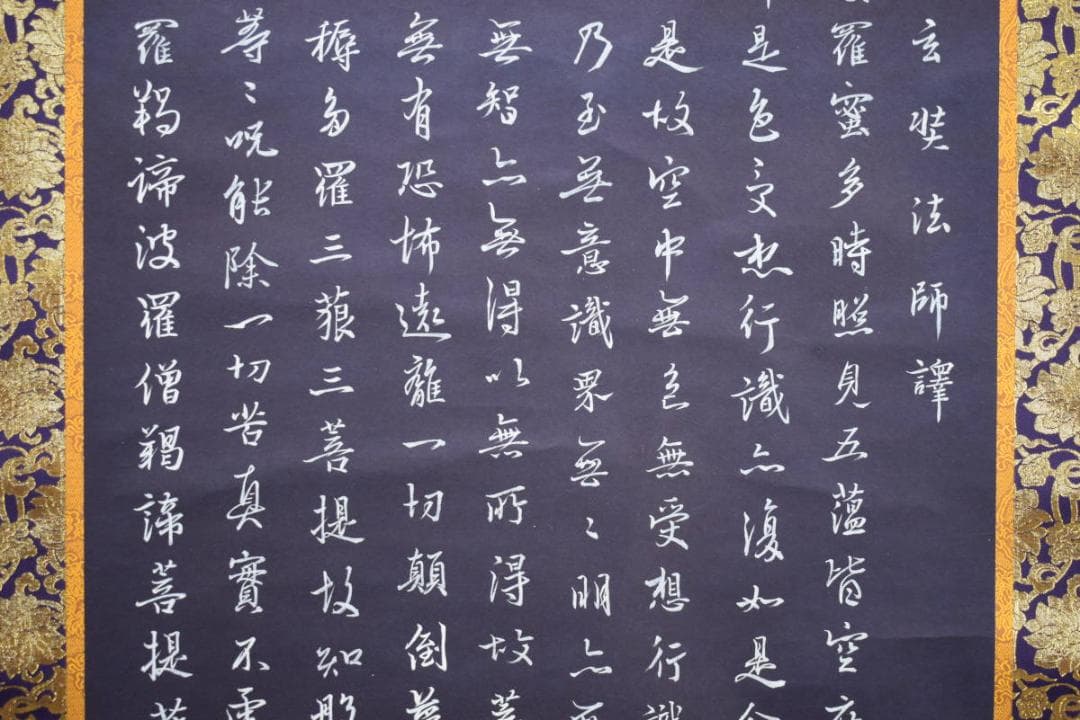 玄奘法師譯
羅蜜多時照見五蘊皆空度
是色受想行識亦復如是舍
是故空中無色無受想行識
乃至無意識界無々明亦無
無智亦無得以無所得故菩
無有恐怖遠離一切顛倒夢
耨多羅三藐三菩提故知般
等々呪能除一切苦真實不虚
羅羯諦波羅僧羯諦菩提薩